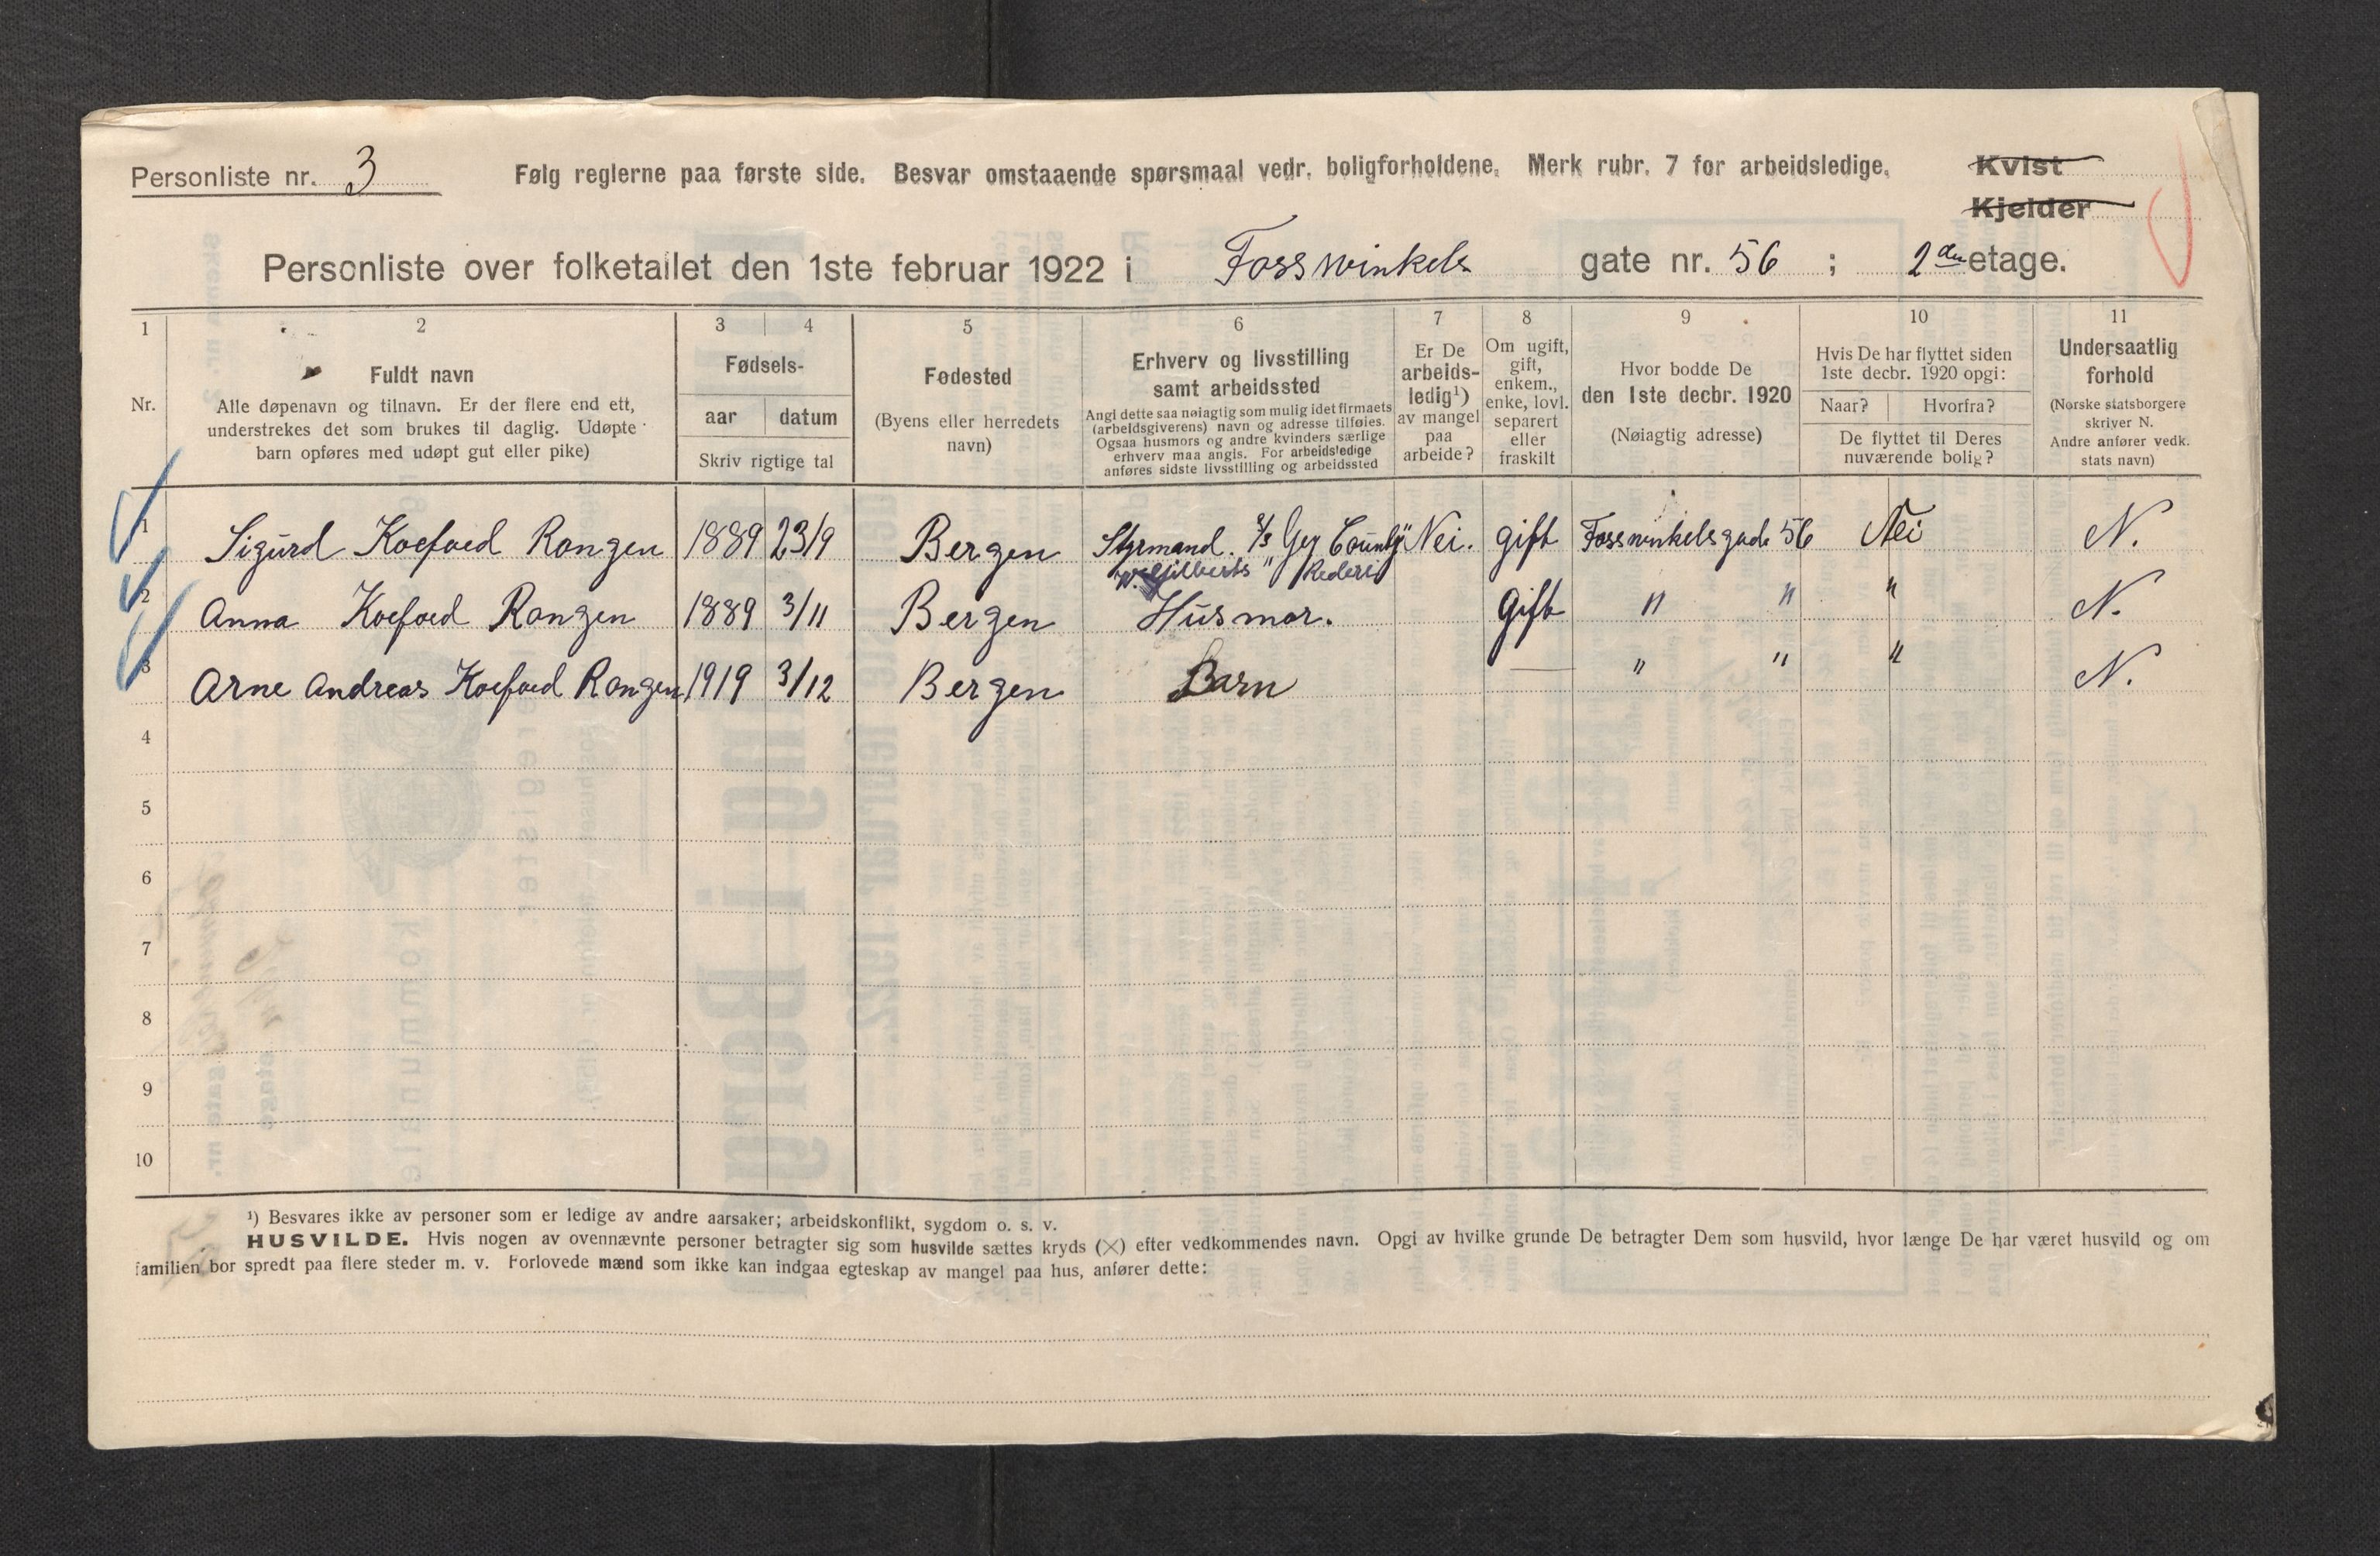 Personliste nr. 3 Følg reglerne paa første side. Besvar omstaaende spørsmaal vedr. boligforholdene. Merk rubr. 7 for arbeidsledige. Kvist
Kjelder
Personliste over folketallet den 1ste februar 1922 i Fosswinkels gate nr. 56 ; 2den etage.
1 2 3 4 5 6 7 8 9 10 11
Nr.
Fuldt navn
Alle døpenavn og tilnavn. Er der flere end ett,
understrekes det som brukes til daglig. Udøpte
barn opføres med udøpt gut eller pike)
Fødsels-
aar datum
Skriv rigtige tal
Fødested
(Byens eller herredets
navn)
Erhverv og livsstilling
samt arbeidssted
Angi dette saa nøiagtig som mulig idet firmaets
(arbeidsgiverens) navn og adresse tilføies.
Ogsaa husmors og andre kvinders særlige
erhverv maa angis. For arbeidsledige
anføres sidste livsstilling og arbeidssted
Er De
arbeids-
ledig¹)
av mangel
paa
arbeide?
Om ugift,
gift,
enkem.,
enke, lovl.
separert
eller
fraskilt
Hvor bodde De
den 1ste decbr. 1920
(Nøiagtig adresse)
Hvis De har flyttet siden
1ste decbr. 1920 opgi:
Naar? Hvorfra?
De flyttet til Deres
nuværende bolig?
Undersaatlig
forhold
(Norske statsborgere
skriver N.
Andre anfører vedk.
stats navn)
1 Sigurd Koefoed Rongen 1889 23/9 Bergen Styrmand. S/S County" Nei. gift Fosswinkelsgade 56 Nei N.
Rederi
2 Anna Koefoed Rongen 1889 3/11 Bergen Husmor. Gift " " " N.
3 Arne Andreas Koefoed Rongen 1919 3/12 Bergen Barn — " " " N.
4
5
6
7
8
9
10
¹) Besvares ikke av personer som er ledige av andre aarsaker; arbeidskonflikt, sygdom o. s. v.
HUSVILDE. Hvis nogen av ovennævnte personer betragter sig som husvilde sættes kryds (×) efter vedkommendes navn. Opgi av hvilke grunde De betragter Dem som husvild, hvor længe De har været husvild og om
familien bor spredt paa flere steder m. v. Forlovede mænd som ikke kan indgaa egteskap av mangel paa hus, anfører dette: